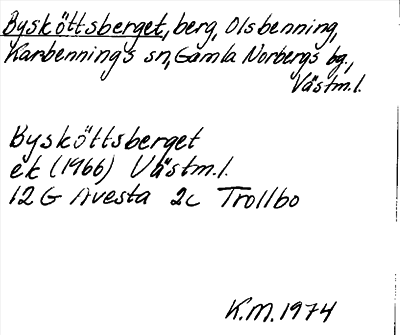 Bysköttsberget, berg, Olsbenning,
Karbennings sn, Gamla Norbergs bg.,
Västm.l.
Bysköttsberget
ek (1966) Västm.l.
12G Avesta 2c Trollbo
K.M. 1974